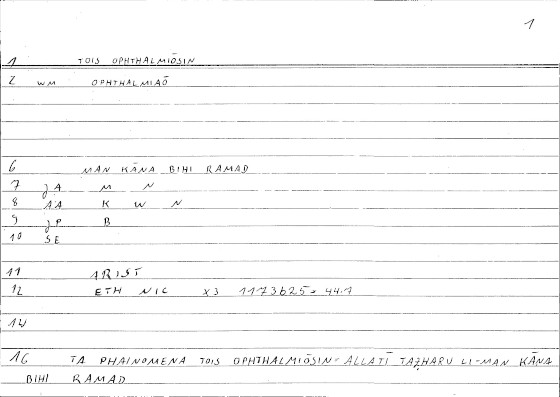 1
1 TOIS OPHTHALMIŌSIN
2 WM OPHTHALMIAŌ
6 MAN KĀNA BIHI RAMAD
7 JA M N
8 AA K W N
9 JP B
10 SE
11 ARIST
12 ETH NIC X3 1173b25 = 44.1
14
16 TA PHAINOMENA TOIS OPHTHALMIŌSIN = ALLATĪ TAẒHARU LI-MAN KĀNA
BIHI RAMAD